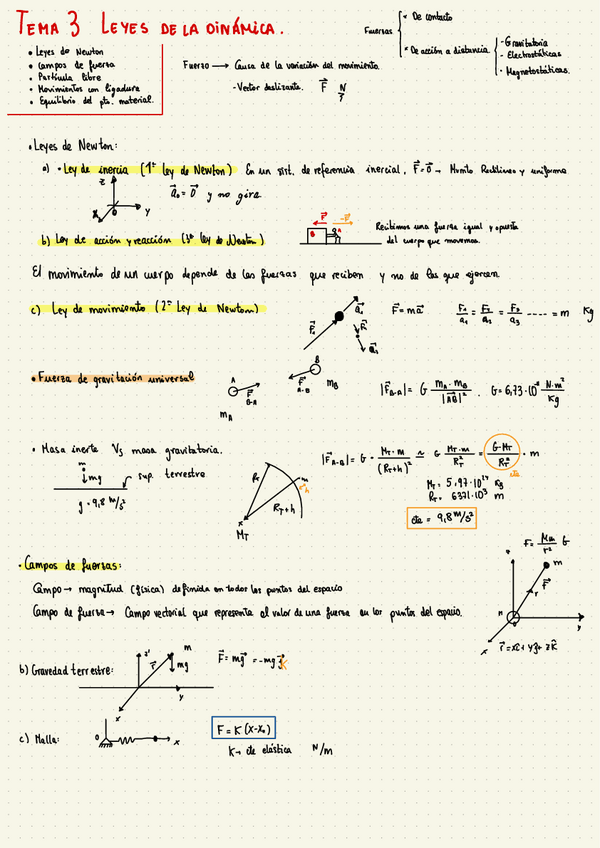 TEMA 3 LEYES DE LA DINÁMICA.
• Leyes de Newton
• Campos de fuerza
• Partícula libre
• Movimientos con ligadura
• Equilibrio del pto. material.
Fuerzas
* De contacto
* De acción a distancia
- Gravitatoria
- Electrostáticas
- Magnetostáticas.
Fuerza → Causa de la variación del movimiento.
- Vector deslizante. F⃗ N
• Leyes de Newton:
a) • Ley de inercia (1ª ley de Newton) En un sist. de referencia inercial, F⃗=0⃗ → Mvnto Rectilíneo y uniforme
a⃗₀ = 0⃗ y no gira
z
0
y
x
b) Ley de acción y reacción (3ª ley de Newton)
F⃗ -F⃗
B A
Recibimos una fuerza igual y opuesta
del cuerpo que movemos.
El movimiento de un cuerpo depende de las fuerzas que reciben y no de las que ejercen
c) Ley de movimiento (2ª Ley de Newton)
F⃗ = ma⃗
F₁/a₁ = F₂/a₂ = F₃/a₃ ---- = m Kg
• Fuerza de gravitación universal
A F⃗ B-A m_A
B F⃗ A-B m_B
|F⃗ B-A| = G m_A·m_B / |AB⃗|² . G = 6,73·10⁻¹¹ N·m²/Kg
• Masa inerte Vs masa gravitatoria.
m
mg⃗
sup. terrestre
g = 9,8 m/s²
R_T
m
h
R_T+h
M_T
|F⃗ A-B| = G · M_T·m/(R_T+h)² ≃ G M_T·m/R_T² = G·M_T/R_T² · m
cte
M_T = 5.97·10²⁴ Kg
R_T = 6371·10³ m
cte = 9,8 m/s²
• Campos de fuerzas:
Campo → magnitud (física) definida en todos los puntos del espacio
Campo de fuerza → Campo vectorial que representa el valor de una fuerza en los puntos del espacio.
F = Mm/r² G
m
F⃗
r
M
y
x
r⃗ = xî + yĵ + zk̂
b) Gravedad terrestre:
z
r⃗
m
mg⃗
y
x
F⃗ = mg⃗ = -mg k⃗
c) Malla:
0
x
F = K (x-x₀)
K → cte elástica N/m